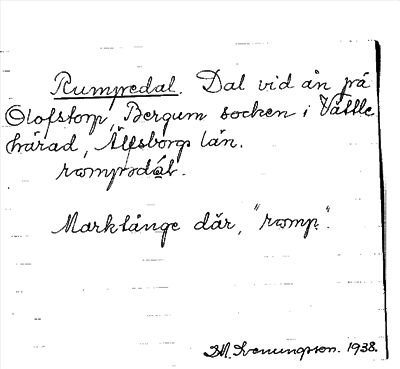 Rumpedal. Dal vid ån på
Olofstorp, Bergum socken i Vättle
härad, Älfsborgs län.
Marklänge där, "romp".
1938.